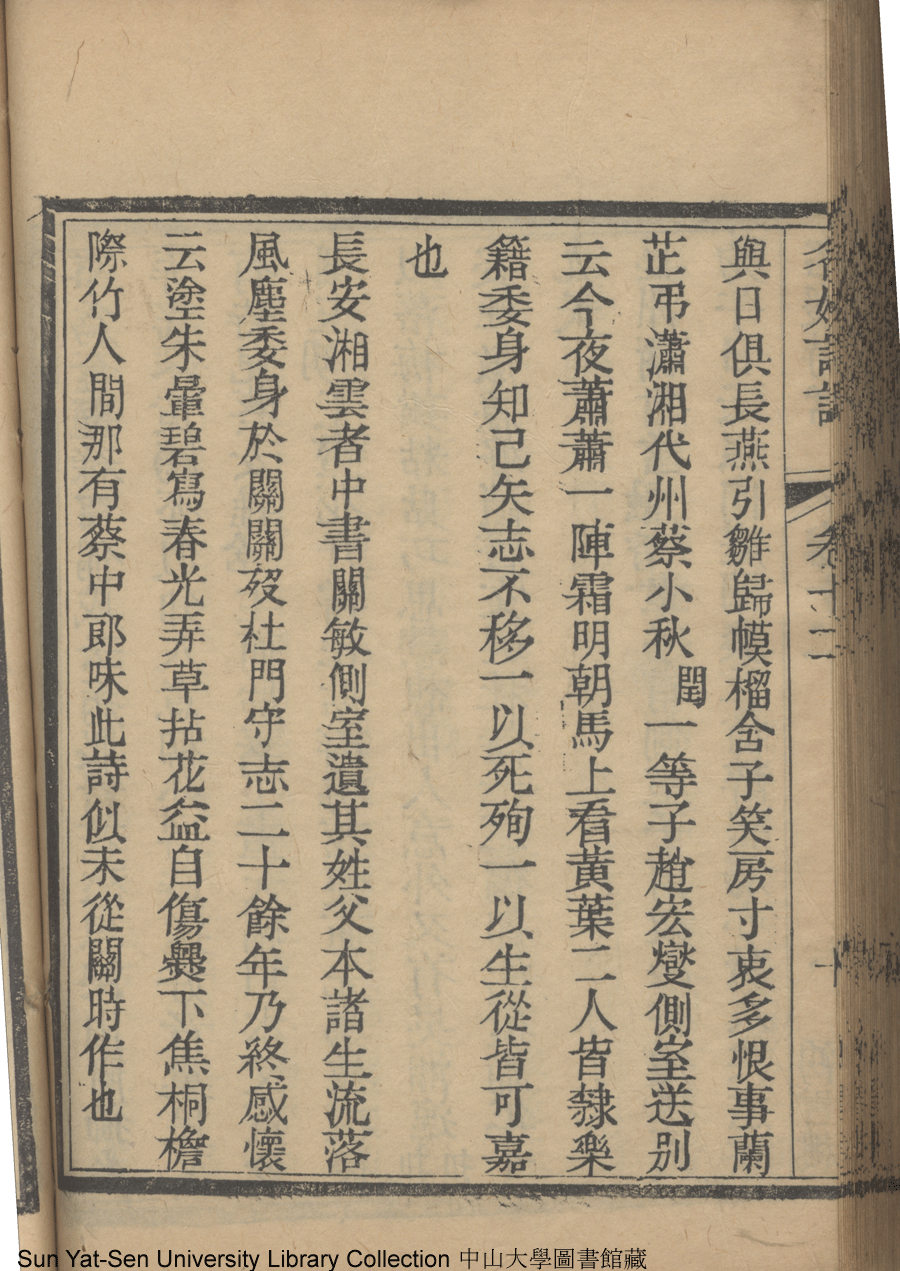 與日俱長燕引雛歸幙榴舍子笑房寸衷多恨事蘭
芷弔瀟湘代州蔡小秋閏一等子趙宏燮側室送別
云今夜蕭蕭一陣霜明朝馬上看黃葉二人皆隸樂
籍委身知己矢志不移一以死殉一以生從皆可嘉
也
長安湘雲者中書關敏側室遺其姓父本諸生流落
風塵委身於關關歿杜門守志二十餘年乃終感懷
云塗朱暈碧寫春光弄草拈花益自傷爨下焦桐檐
際竹人間那有蔡中郎味此詩似未從關時作也
卷十二
Sun Yat-Sen University Library Collection 中山大學圖書館藏